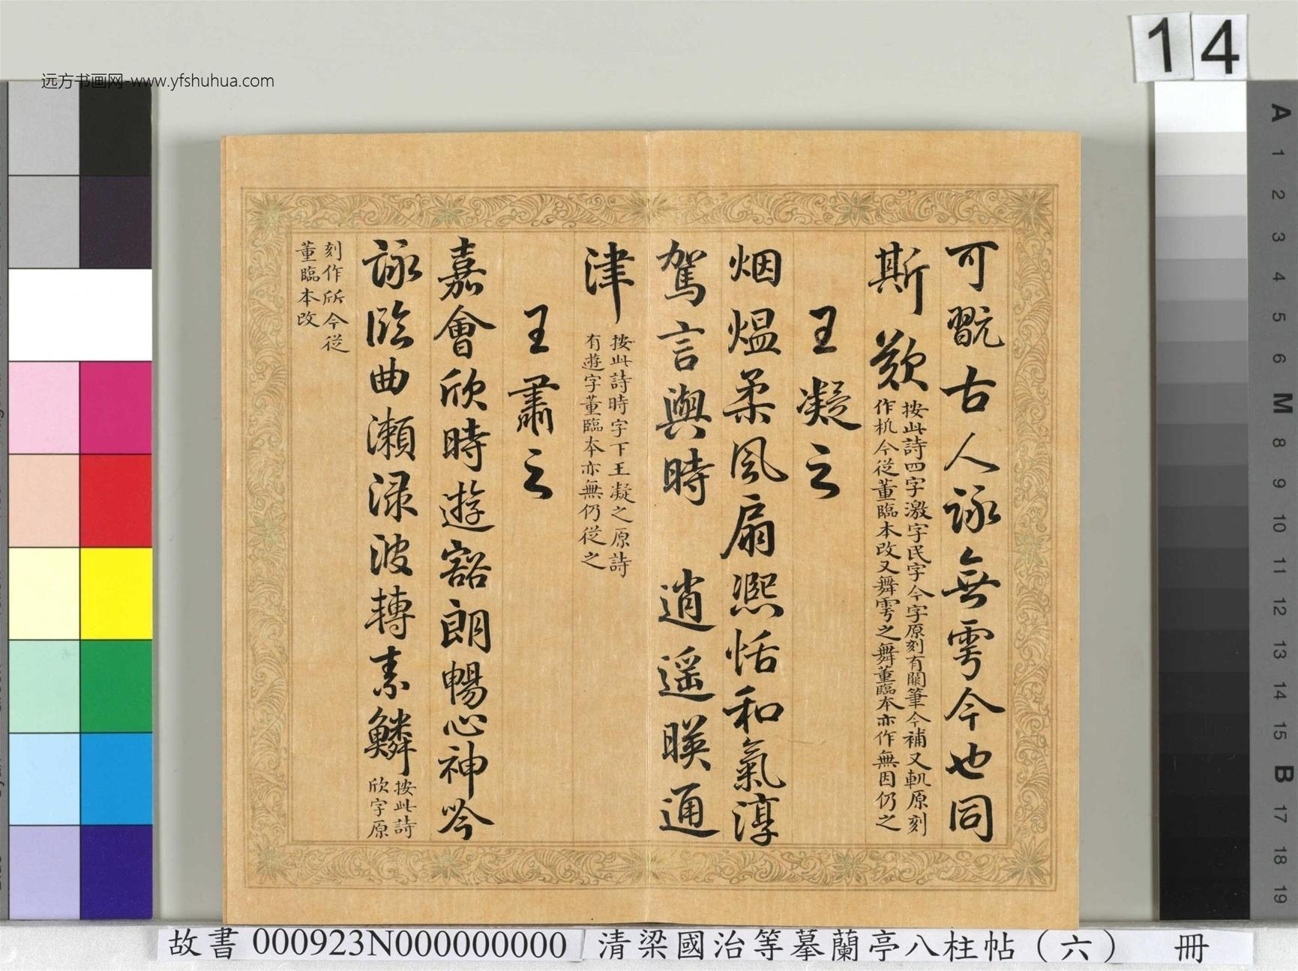 远方书画网-www.yfshuhua.com
14
可翫古人詠無雩今也同
斯歎
按此詩四字激字民字今字原刻有闕筆今補又軏原刻
作机今從董臨本改又舞雩之舞董臨本亦作無因仍之
王凝之
烟熅柔風扇熈恬和氣淳
駕言與時 逍遥暎通
津
按此詩時字下王凝之原詩
有遊字董臨本亦無仍從之
王肅之
嘉會欣時遊豁朗暢心神吟
詠臨曲瀨渌波轉素鱗
按此詩
欣字原
刻作㪽今從
董臨本改
A 1 2 3 4 5 6 M 8 9 10 11 12 13 14 15 B 17 18 19
故書 000923N000000000 清梁國治等摹蘭亭八柱帖（六） 冊